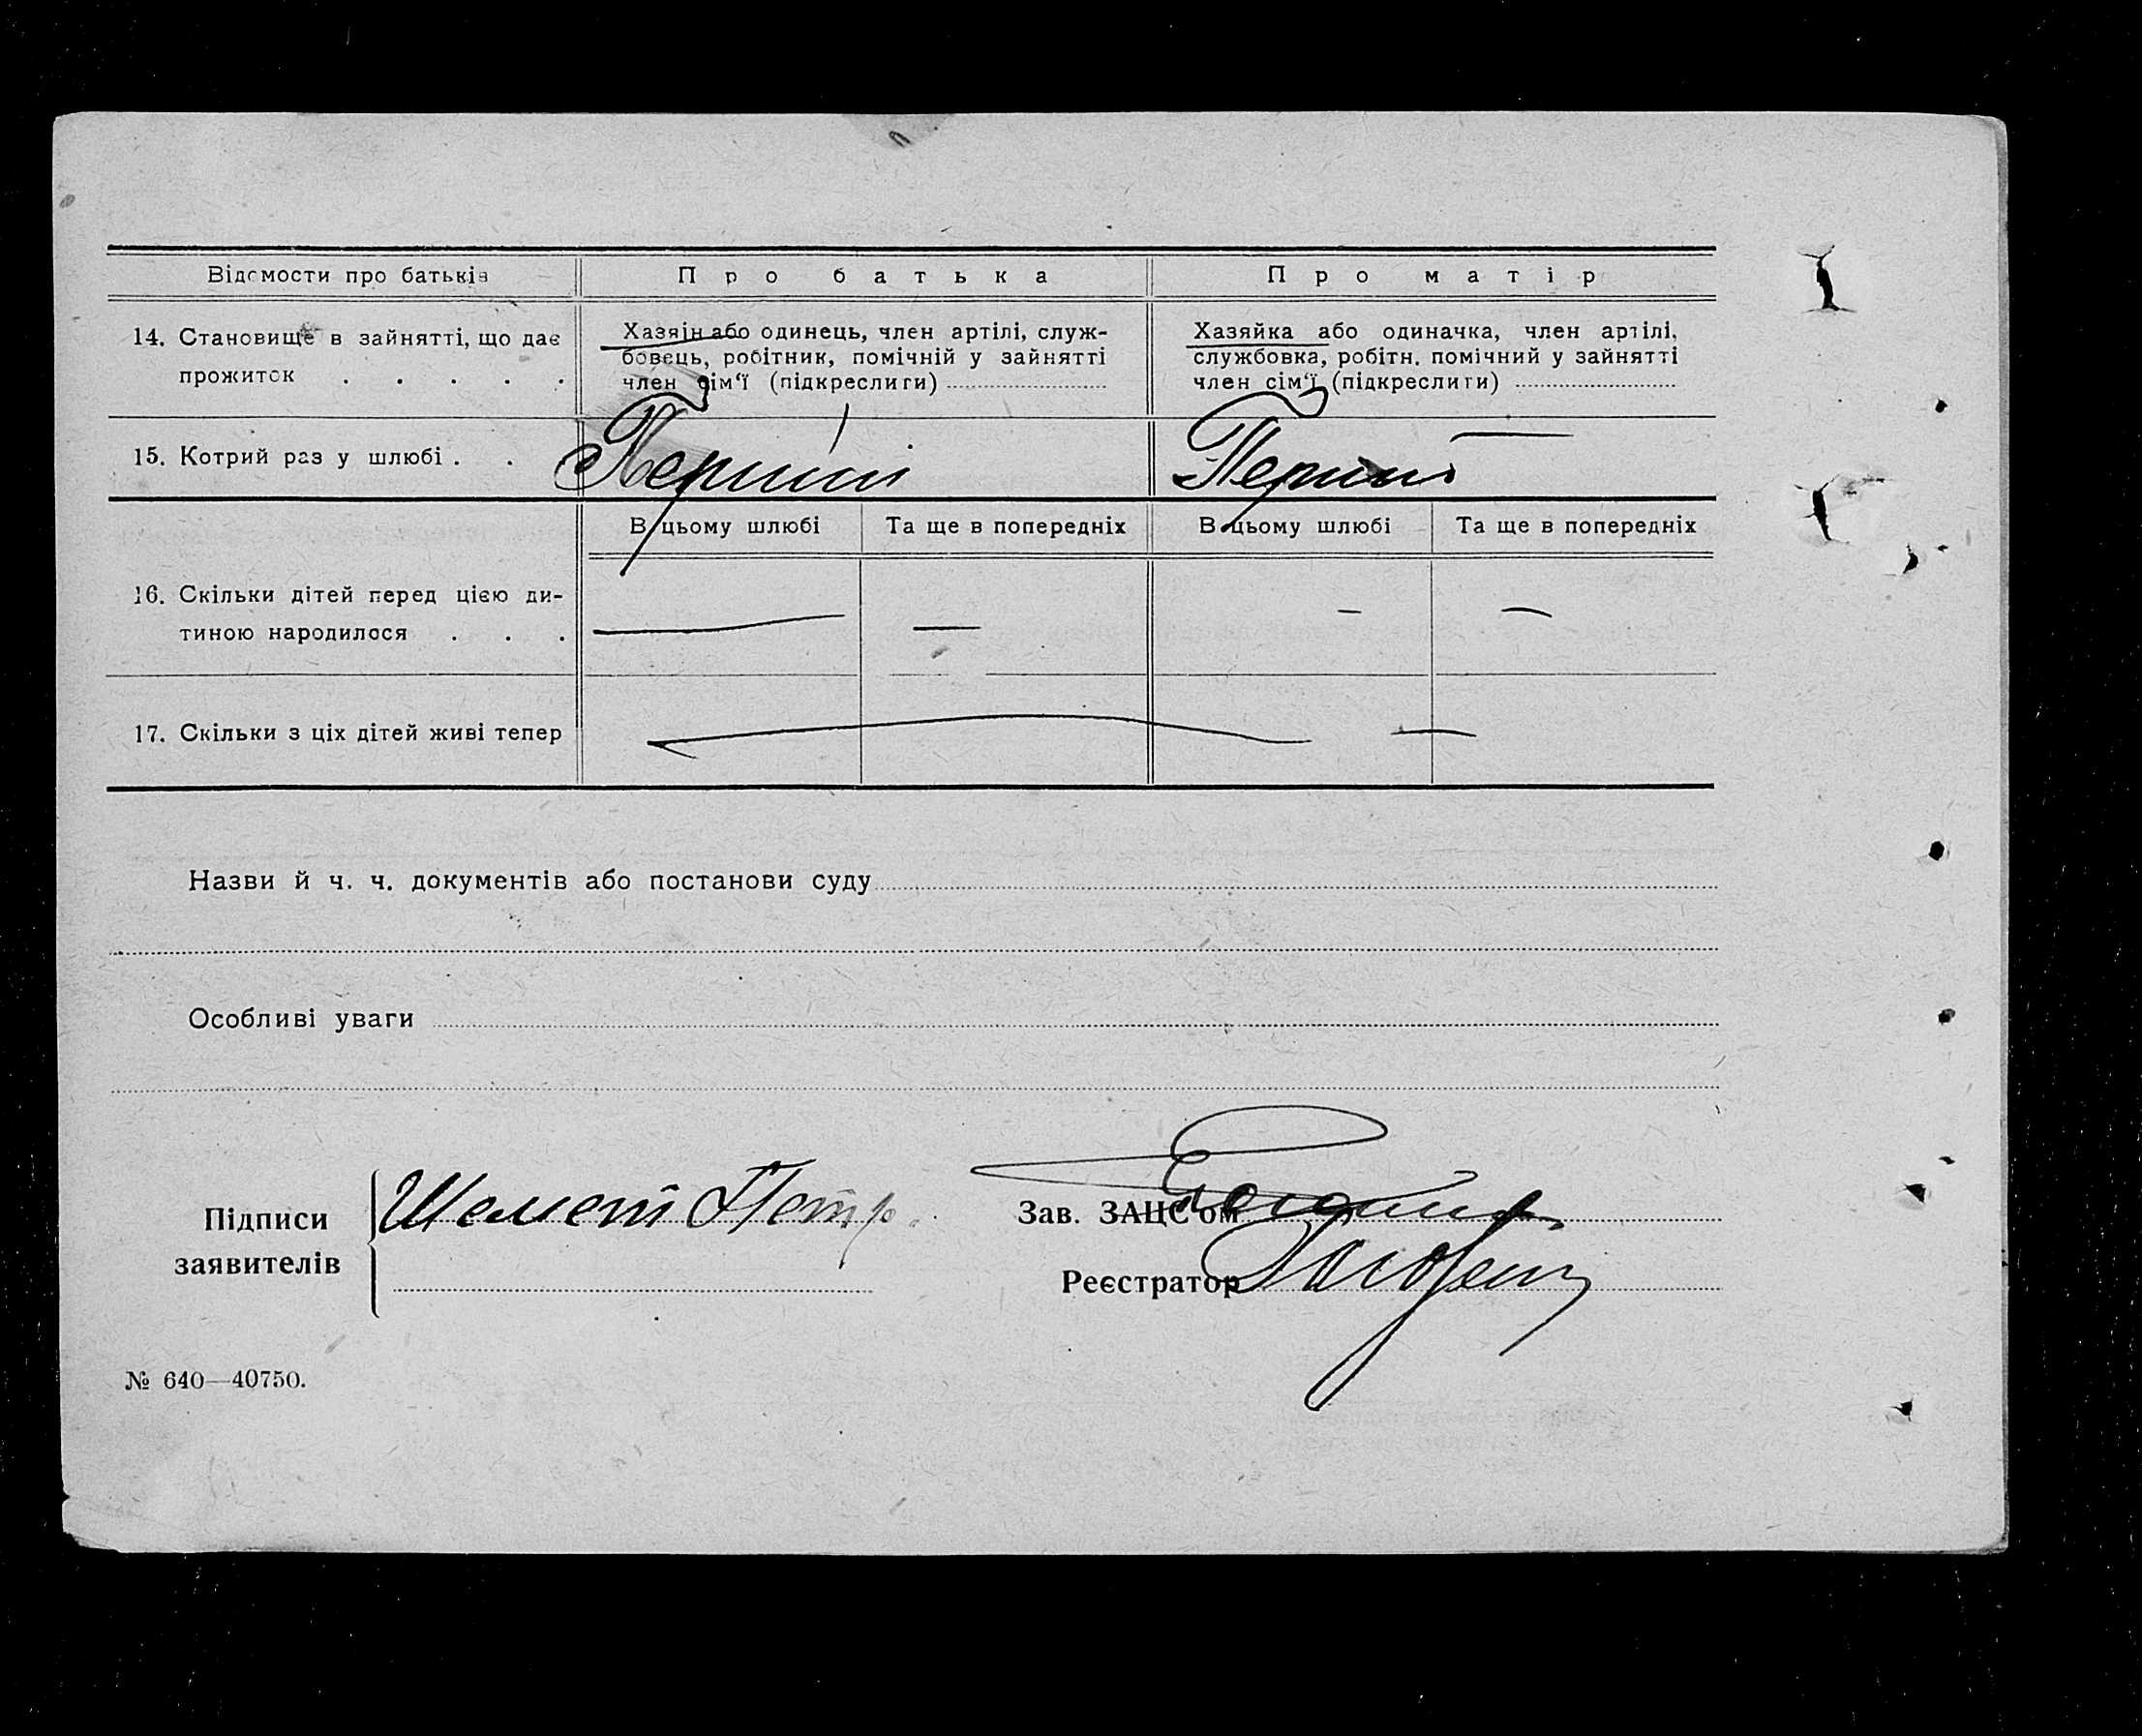 Відомости про батьків П р о б а т ь к а П р о м а т і р
14. Становище в зайнятті, що дає прожиток . . . . .
Хазяїн або одинець, член артілі, служ-
бовець, робітник, помічній у зайнятті
член сім‘ї (підкреслити)
Хазяйка або одиначка, член артілі,
службовка, робітн. помічний у зайнятті
член сім‘ї (підкреслити)
15. Котрий раз у шлюбі . . Перший Перший
В цьому шлюбі Та ще в попередніх В цьому шлюбі Та ще в попередніх
16. Скільки дітей перед цією ди-
тиною народилося . . . — — — —
17. Скільки з ціх дітей живі тепер — —
Назви й ч. ч. документів або постанови суду
Особливі уваги
Підписи
заявителів
Шемет Петр.
Зав. ЗАЦС‘ом
Реєстратор
№ 640—40750.